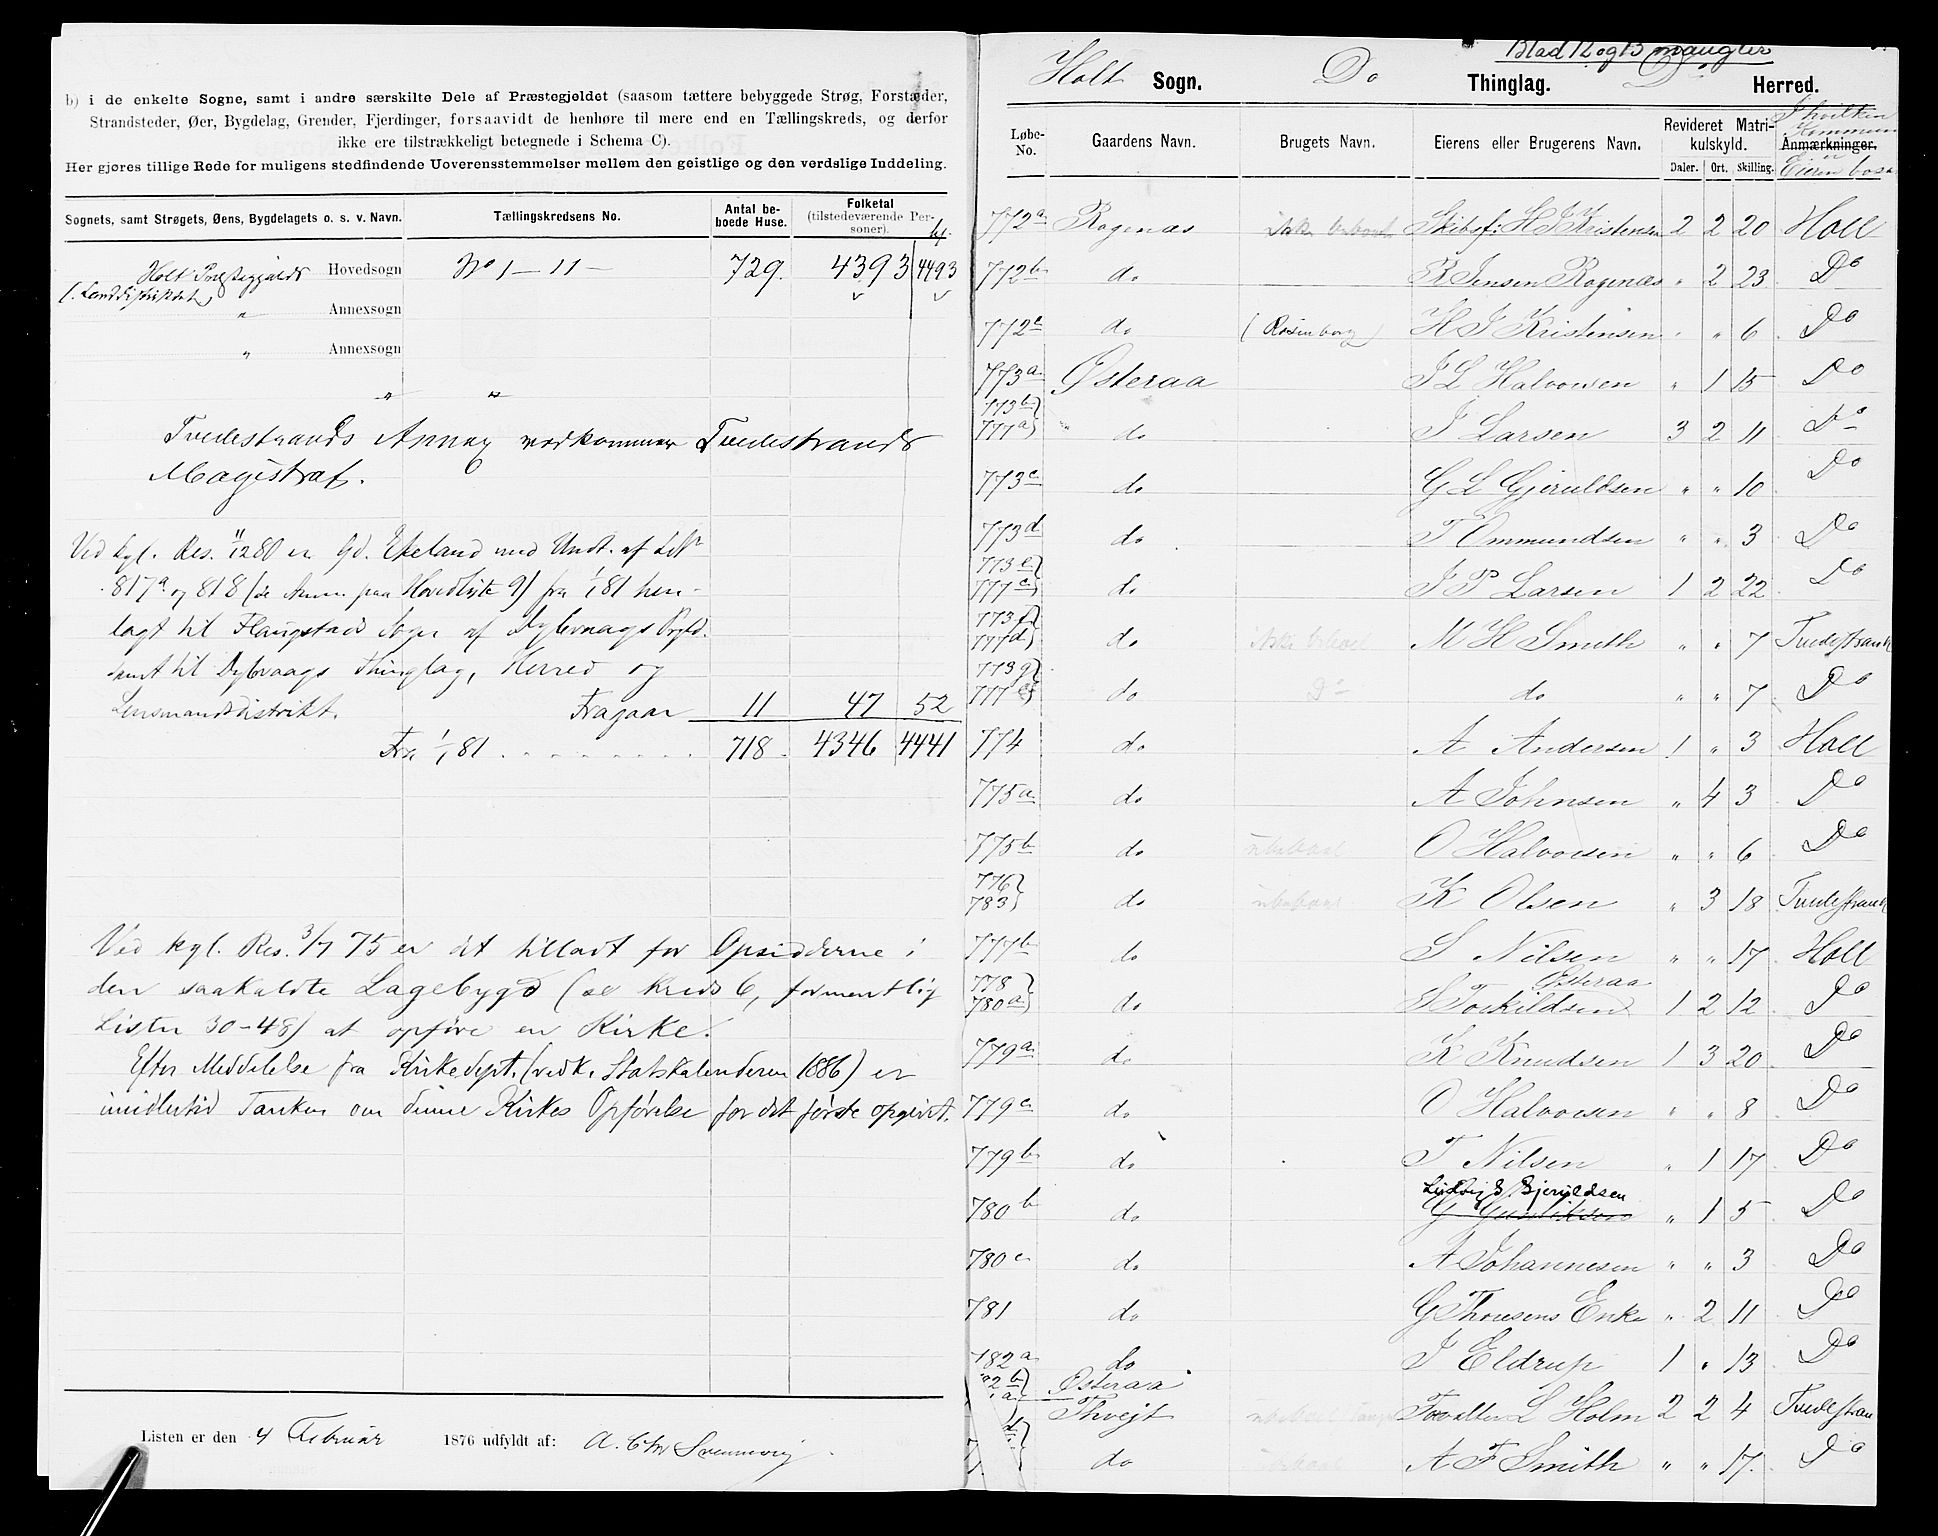 b) i de enkelte Sogne, samt i andre særskilte Dele af Præstegjeldet (saasom tættere bebyggede Strøg, Forstæder,
Strandsteder, Øer, Bygdelag, Grender, Fjerdinger, forsaavidt de henhøre til mere end en Tællingskreds, og derfor
ikke ere tilstrækkeligt betegnede i Schema C).
Her gjøres tillige Rede for muligens stedfindende Uoverensstemmelser mellem den geistlige og den verdslige Inddeling.
Sognets, samt Strøgets, Øens, Bygdelagets o. s. v. Navn. Tællingskredsens No. Antal beboede Huse. Folketal (tilstedeværende Personer). hj.
Holt Præstegjelds Hovedsogn No 1 - 11 - 729. 4393 4493
(Landdistriktet)
" Annexsogn
" Annexsogn
" "
Tvedestrands Annex vedkommer Tvedestrands
Magistrat.
Ved kgl. Res. 11/12 80 er Gd. Ekeland med Undt. af LNr
817a og 818 (se Anm. paa Hovedliste 9) fra 1/1 81 hen-
lagt til Flaugstads Sogn af Dybvaags Prgld.
samt til Dybvaags Thinglag, Herred og
Lensmandsdistrikt. Fragaar 11 47 52
Fra 1/1 81 . . . . . . . 718. 4346 4441
Ved kgl. Res. 3/7 75 er det tilladt for Opsidderne i
den saakaldte Lagebygd (se Kreds 6, formentlig
Lister 30-48) at opføre en Kirke.
Efter Meddelelse fra Kirkedept. (vedk. Statskalenderen 1886) er
imidlertid Tanken om denne Kirkes Opførelse for det første opgivet.
Listen er den 4 Februar 1876 udfyldt af: A. Chr
Blad 12 og 13 mangler
Holt Sogn. Do Thinglag. Do Herred.
Løbe-No. Gaardens Navn. Brugets Navn. Eierens eller Brugerens Navn. Revideret Matrikulskyld. Daler. Ort. Skilling. Anmærkninger. I hvilken Kommune er Eieren bosat
772a Ragenæs ikke beboet Skibsf: H J Kristensen 2 2 20 Holt
772b do R Jensen Ragenæs " 2 23 Do
772c do (Rosenborg) H J Kristensen " " 6 Do
773a Østeraa J L Halvorsen " 1 15 Do
773b 777a do J Larsen 3 2 11 Do
773c do G L Gjeruldsen " " 10 Do
773d do T Ommundsen " " 3 Do
773e 777c do J P Larsen 1 2 22 Do
773f 777d do ikke beboet M H Smith " " 7 Tvedestrand
773g 777e do Do do " " 7 Do
774 do A Andersen 1 " 3 Holt
775a do A Johnsen " 4 3 Do
775b do ubeboet O Halvorsen " " 6 Do
776 783 do ubeboet K Olsen " 3 18 Tvedestrand
777b do S Nilsen " " 17 Holt
778 780a do S Torkildsen Østeraa 1 2 12 Do
779a do K Knudsen 1 3 20 Do
779c do O Halvorsen " " 8 Do
779b do T Nilsen " 1 17 Do
780b do Ludvig G Gjeruldsen " 1 5 Do
780c do A Johannesen " " 3 Do
781 do G Thorsens Enke " 2 11 Do
782a do J Eldrup 1 " 13 Do
2b a Østeraa
Thvejt ubeboet Toldvalter L Holm 2 2 4 Tvedestran
do ubeboet A F Smith " " 17. Do